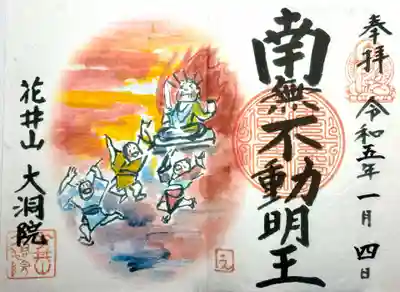 奉拝 令和五年一月四日
南無不動明王
花井山 大洞院